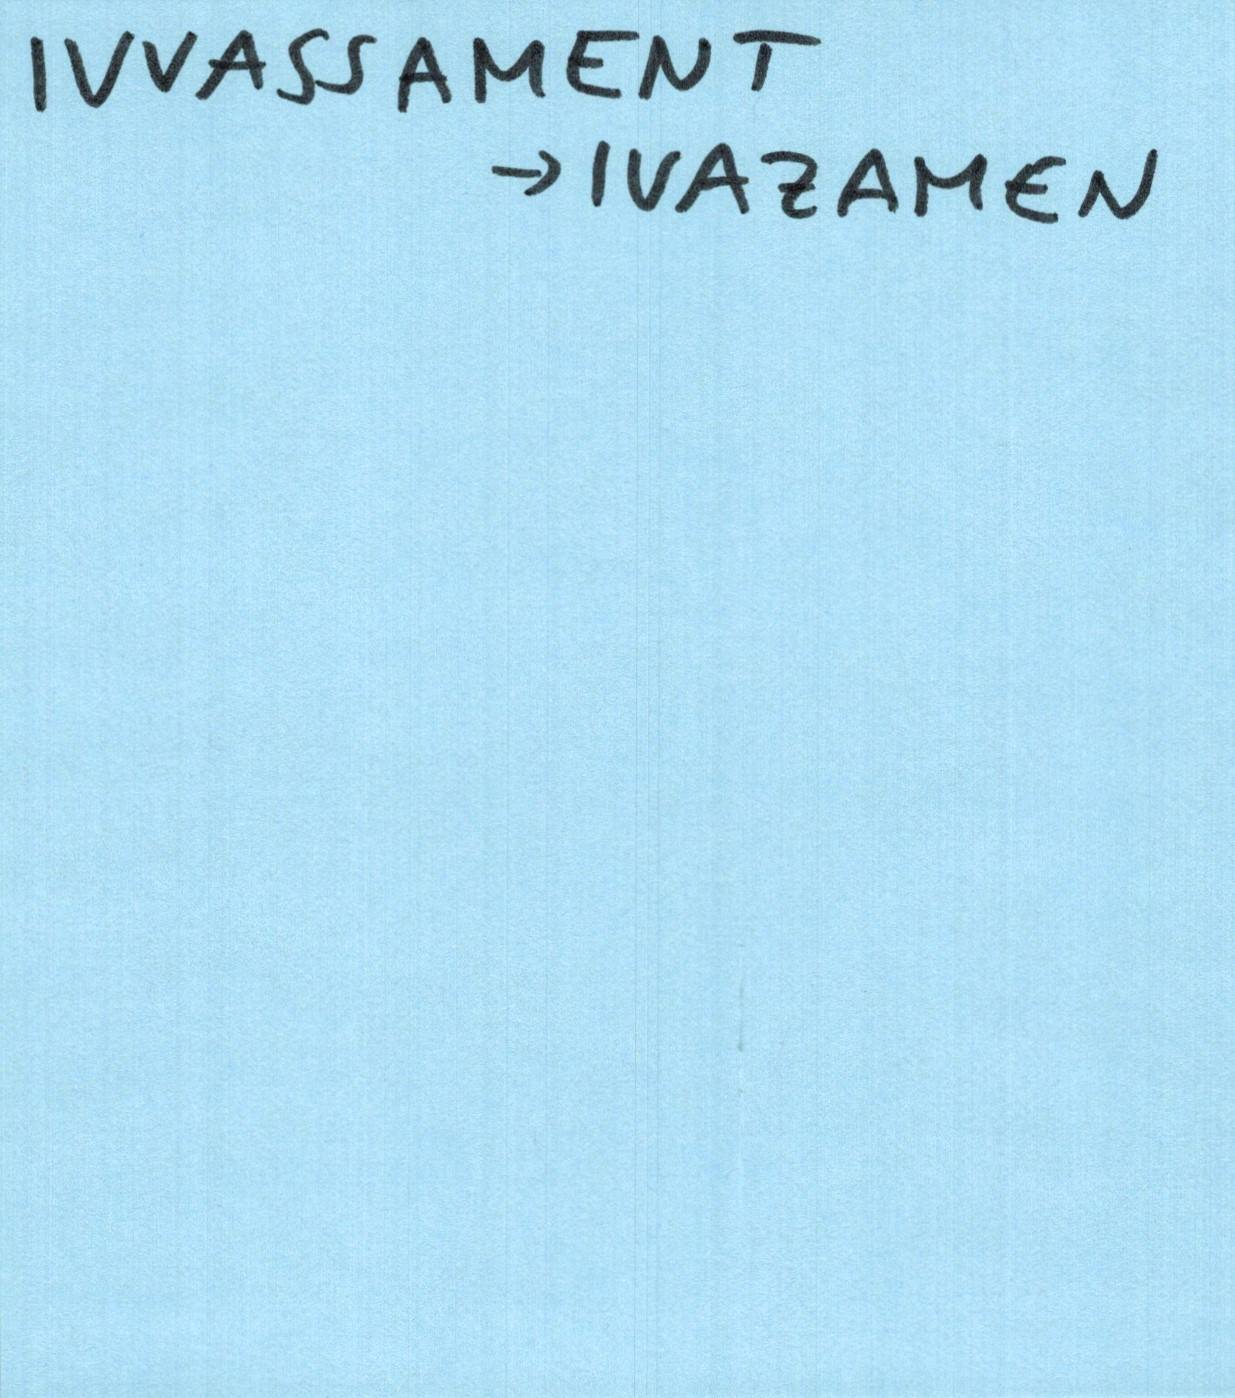 IVVASSAMENT
→ IVAZAMEN